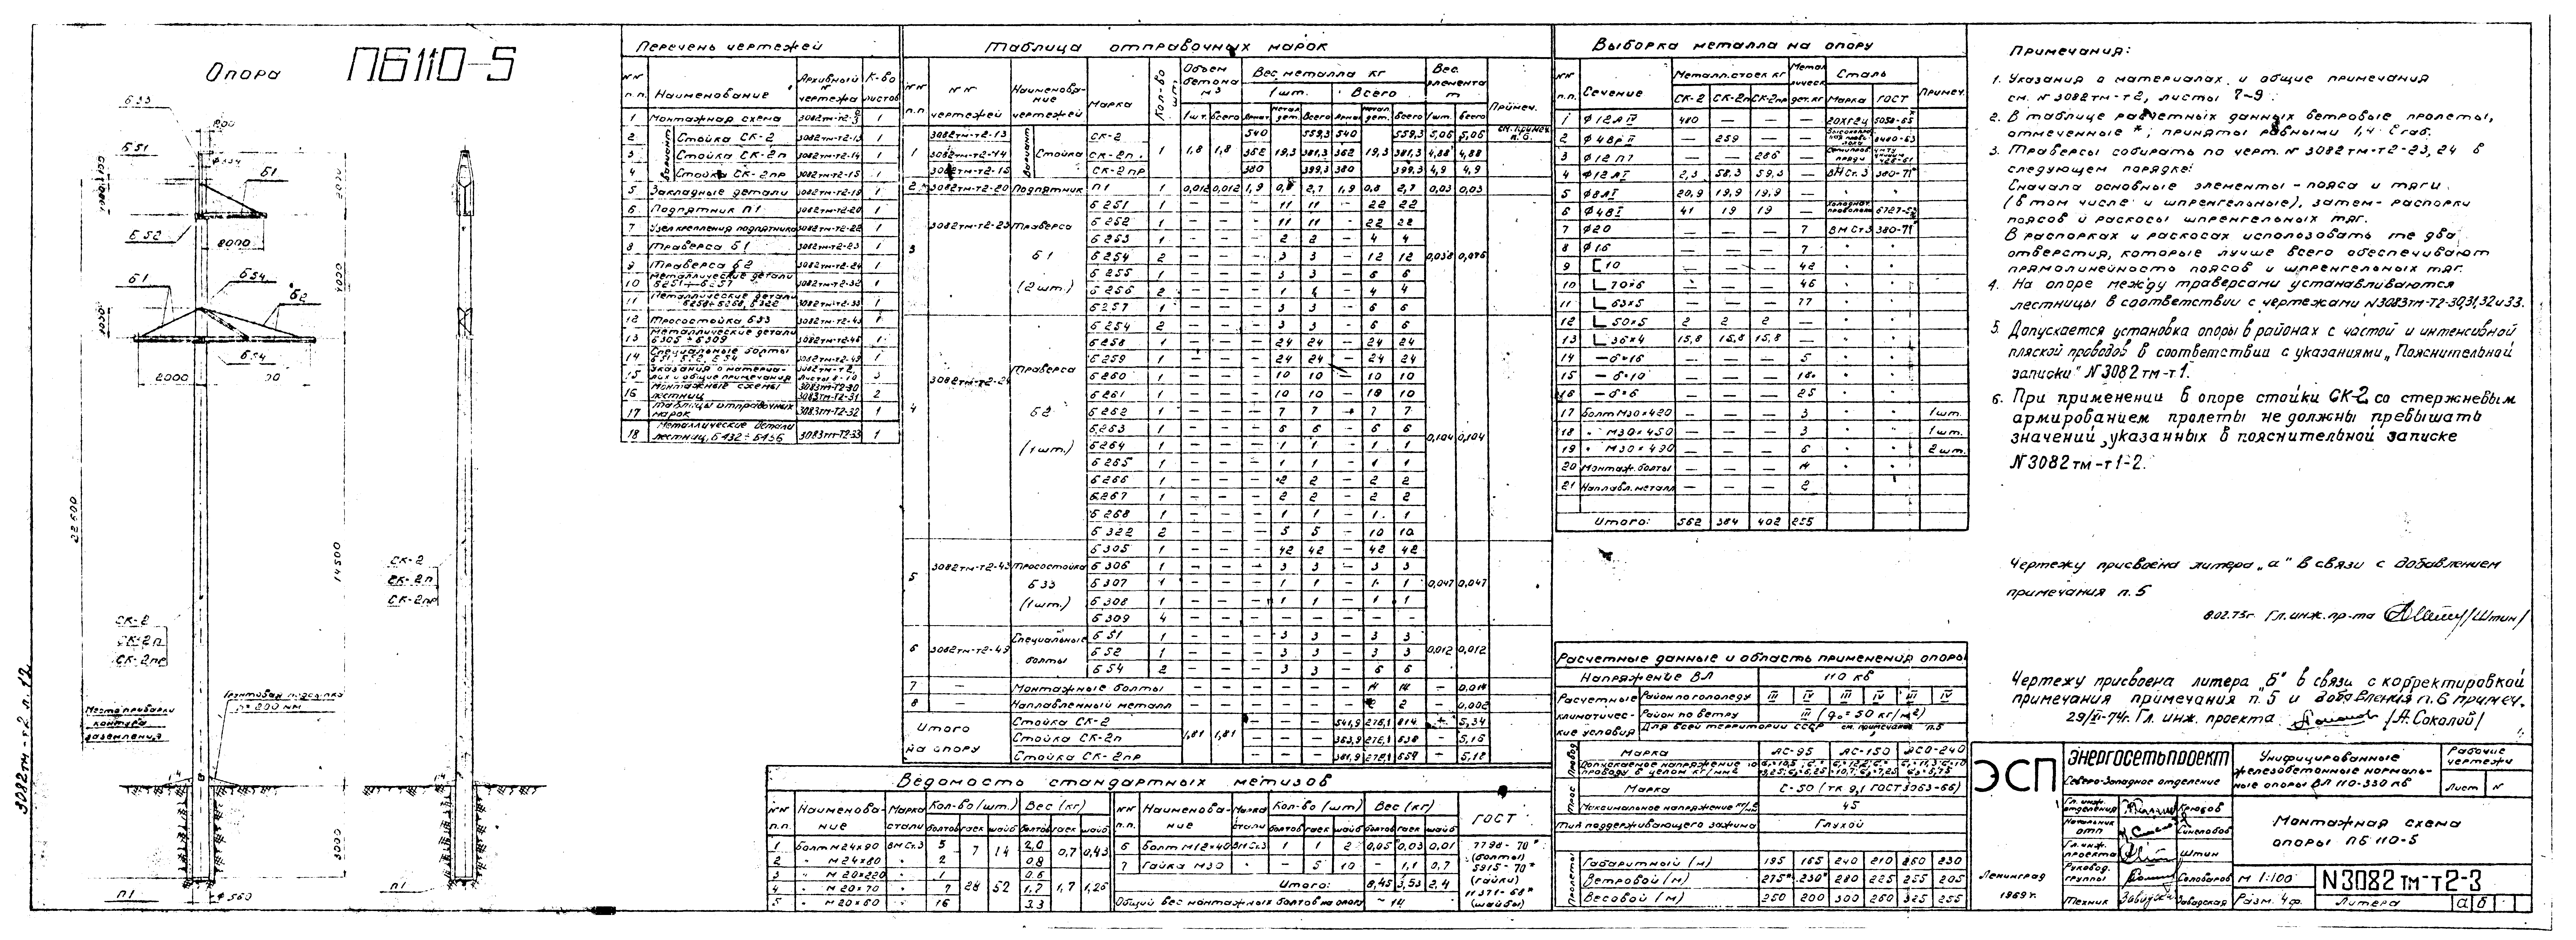 Опора ПБ110-5
Б33
Б51
Б1
Б52
2000
Б1
Б54
Б2
Б54
2000
22600
14500
4000
3000
СК-2
СК-2п
СК-2пр
СК-2
СК-2п
СК-2пр
Место приварки
контура
заземления
П1
П1
ф 560
3082тм-т2 л.12
Перечень чертежей
Наименование
Архивный № чертежа
К-во листов
1 Монтажная схема 3082тм-т2-3 1
2 Стойка СК-2 3082тм-т2-13 1
3 Стойка СК-2п 3082тм-т2-14 1
4 Стойка СК-2пр 3082тм-т2-15 1
5 Закладные детали 3082тм-т2-19 1
6 Подпятник П1 3082тм-т2-20 1
7 Узел крепления подпятника 3082тм-т2-21 1
8 Траверса Б1 3082тм-т2-23 1
9 Траверса Б2 3082тм-т2-24 1
10 Металлические детали Б251÷Б257 3082тм-т2-32 1
11 Металлические детали Б258÷Б268, Б322 3082тм-т2-33 1
12 Тросостойка Б33 3082тм-т2-43 1
13 Металлические детали Б305÷Б309 3082тм-т2-46 1
14 Специальные болты Б51, Б52, Б54 3082тм-т2-49 1
16 Монтажные схемы лестниц 3083тм-т2-30 3083тм-т2-31 2
17 Таблицы отправочных марок 3083тм-т2-32 1
18 Металлические детали лестниц, Б432÷Б436 3083тм-т2-33 1
Таблица отправочных марок
№№ п.п.
№№ чертежей
Наименование чертежей
Марка
Кол-во шт.
Объем бетона м3
Вес металла кг
Вес элемента т
Примеч.
1шт. Всего
1 3082тм-т2-13 СК-2 540 559,3 540 559,3 5,06 5,06 см. примеч. п.6.
3082тм-т2-14 Стойка СК-2п 1 1,8 1,8 362 19,3 381,3 362 19,3 381,3 4,88 4,88
3082тм-т2-15 СК-2пр 380 399,3 380 399,3 4,9 4,9
2 3082тм-т2-20 Подпятник П1 1 0,012 0,012 1,9 0,8 2,7 1,9 0,8 2,7 0,03 0,03
3 3082тм-т2-23 Траверса Б1 (2шт.) 0,038 0,076
Б251 1 – – – 11 11 – 22 22
Б252 1 – – – 11 11 – 22 22
Б253 1 – – – 2 2 – 4 4
Б254 2 – – – 3 3 – 12 12
Б255 1 – – – 3 3 – 6 6
Б256 2 – – – 1 1 – 4 4
Б257 1 – – – 3 3 – 6 6
4 3082тм-т2-24 Траверса Б2 (1шт.) 0,104 0,104
Б254 2 – – – 3 3 – 6 6
Б258 1 – – – 24 24 – 24 24
Б259 1 – – – 24 24 – 24 24
Б260 1 – – – 10 10 – 10 10
Б261 1 – – – 10 10 – 10 10
Б262 1 – – – 7 7 – 7 7
Б263 1 – – – 6 6 – 6 6
Б264 1 – – – 1 1 – 1 1
Б265 1 – – – 1 1 – 1 1
Б266 1 – – – 2 2 – 2 2
Б267 1 – – – 2 2 – 2 2
Б268 1 – – – 1 1 – 1 1
Б322 2 – – – 5 5 – 10 10
5 3082тм-т2-43 Тросостойка Б33 (1шт.) 0,047 0,047
Б305 1 – – – 42 42 – 42 42
Б306 1 – – – 3 3 – 3 3
Б307 1 – – – 1 1 – 1 1
Б308 1 – – – 1 1 – 1 1
Б309 4 – – – – – – – –
6 3082тм-т2-49 Специальные болты 0,012 0,012
Б51 1 – – – 3 3 – 3 3
Б52 1 – – – 3 3 – 3 3
Б54 2 – – – 3 3 – 6 6
7 – Монтажные болты – – – – – – – 14 14 – 0,014
8 – Наплавленный металл – – – – – – – 2 2 – 0,002
Итого на опору 1,81 1,81
Стойка СК-2 541,9 814 – 5,34
Стойка СК-2п 363,9 – 5,16
Стойка СК-2пр 381,9 – 5,18
Ведомость стандартных метизов
№№ п.п. Наименование Марка стали Кол-во (шт.) Вес (кг)
болтов гаек шайб болтов гаек шайб ГОСТ
1 Болт М24×90 ВМСт.3 5 7 14 2,0 0,7 0,43
2 " М24×80 " 2 0,8
3 " М20×220 " 1 28 52 0,6 1,7 1,26
4 " М20×70 " 7 1,7
5 " М20×60 " 16 3,3
6 Болт М12×40 ВМСт.3 1 1 2 0,05 0,03 0,01
7 Гайка М30 " – 5 10 – 1,1 0,7
Итого: 8,45 3,53 2,4
Общий вес монтажных болтов на опору ~ 14
7798-70*
(болты)
5915-70*
(гайки)
11371-68*
(шайбы)
Выборка металла на опору
№№ п.п. Сечение Металл. стоек кг Сталь Примеч.
СК-2 СК-2п СК-2пр Марка ГОСТ
1 ф12АIV 480 – – – 20ХГ2Ц 5058-65*
2 ф4ВрII – 259 – – 8480-63
3 ф12П7 – – 286 –
4 ф12АI 2,3 58,3 59,3 – ВМСт.3 380-71*
5 ф8АI 20,9 19,9 19,9 – " "
6 ф4ВI 41 19 19 – 6727-53
7 ф20 – – – 7 ВМСт3 380-71*
8 ф16 – – – 7 " "
9 [10 – – – 42 " "
10 L70×6 – – – 46 " "
11 L63×5 – – – 77 " "
12 L50×5 2 2 2 – " "
13 L36×4 15,8 15,8 15,8 – " "
14 –6×16 – – – 5 " "
15 –6×10 – – – 18 " "
16 –6×6 – – – 25 " "
17 Болт М30×420 – – – 3 " " 1шт.
18 " М30×450 – – – 3 " " 1шт.
19 " М30×490 – – – 6 " " 2шт.
20 Монтаж. болты – – – 14 " "
21 Наплавл. металл – – – 2
Итого: 562 384 402 255
Расчетные данные и область применения опоры
Напряжение ВЛ 110 кв
Расчетные климатические условия
Район по гололеду III IV III IV III IV
Район по ветру III (q₀=50 кг/м2)
Для всей территории СССР см. примечание п.5
Марка АС-95 АС-150 АСО-240
Марка С-50 (ТК 9,1 ГОСТ 3063-66)
Максимальное напряжение кг/мм2 45
Тип поддерживающего зажима Глухой
Пролеты
Габаритный (м) 195 165 240 210 260 230
Ветровой (м) 275* 230* 280 225 255 205
Весовой (м) 250 200 300 260 325 255
Примечания:
1. Указания о материалах и общие примечания
см. № 3082тм-т2, листы 7-9.
2. В таблице расчетных данных ветровые пролеты,
отмеченные *, приняты равными 1,4 ℓ габ.
3. Траверсы собирать по черт. № 3082тм-т2-23, 24 в
следующем порядке:
Сначала основные элементы – пояса и тяги
(в том числе и шпренгельные), затем – распорки
поясов и раскосы шпренгельных тяг.
В распорках и раскосах использовать те два
отверстия, которые лучше всего обеспечивают
прямолинейность поясов и шпренгельных тяг.
4. На опоре между траверсами устанавливаются
лестницы в соответствии с чертежами №3083тм-т2-30,31,32и33.
5. Допускается установка опоры в районах с частой и интенсивной
пляской проводов в соответствии с указаниями „Пояснительной
записки" №3082тм-т1.
6. При применении в опоре стойки СК-2 со стержневым
армированием пролеты не должны превышать
значений, указанных в пояснительной записке
№3082тм-т1-2.
Чертежу присвоена литера „а" в связи с добавлением
примечания п.5
8.02.73г. Гл. инж. пр-та /Штин/
Чертежу присвоена литера „б" в связи с корректировкой
примечания примечания п.5 и добавления п.6 примеч.
29/XI-74г. Гл. инж. проекта /А. Соколой/
ЭСП
Энергосетьпроект
Северо-Западное отделение
Унифицированные
железобетонные нормаль-
ные опоры ВЛ 110-330 кв
Рабочие
чертежи
Лист №
Гл. инж. отделения Крюков
Начальник ОТП Синелобов
Гл. инж. проекта Штин
Руковод. группы
Техник Завадская
Монтажная схема
опоры ПБ 110-5
Ленинград
1969г.
М 1:100
Разм. 4ф.
№3082тм-т2-3
Литера а б